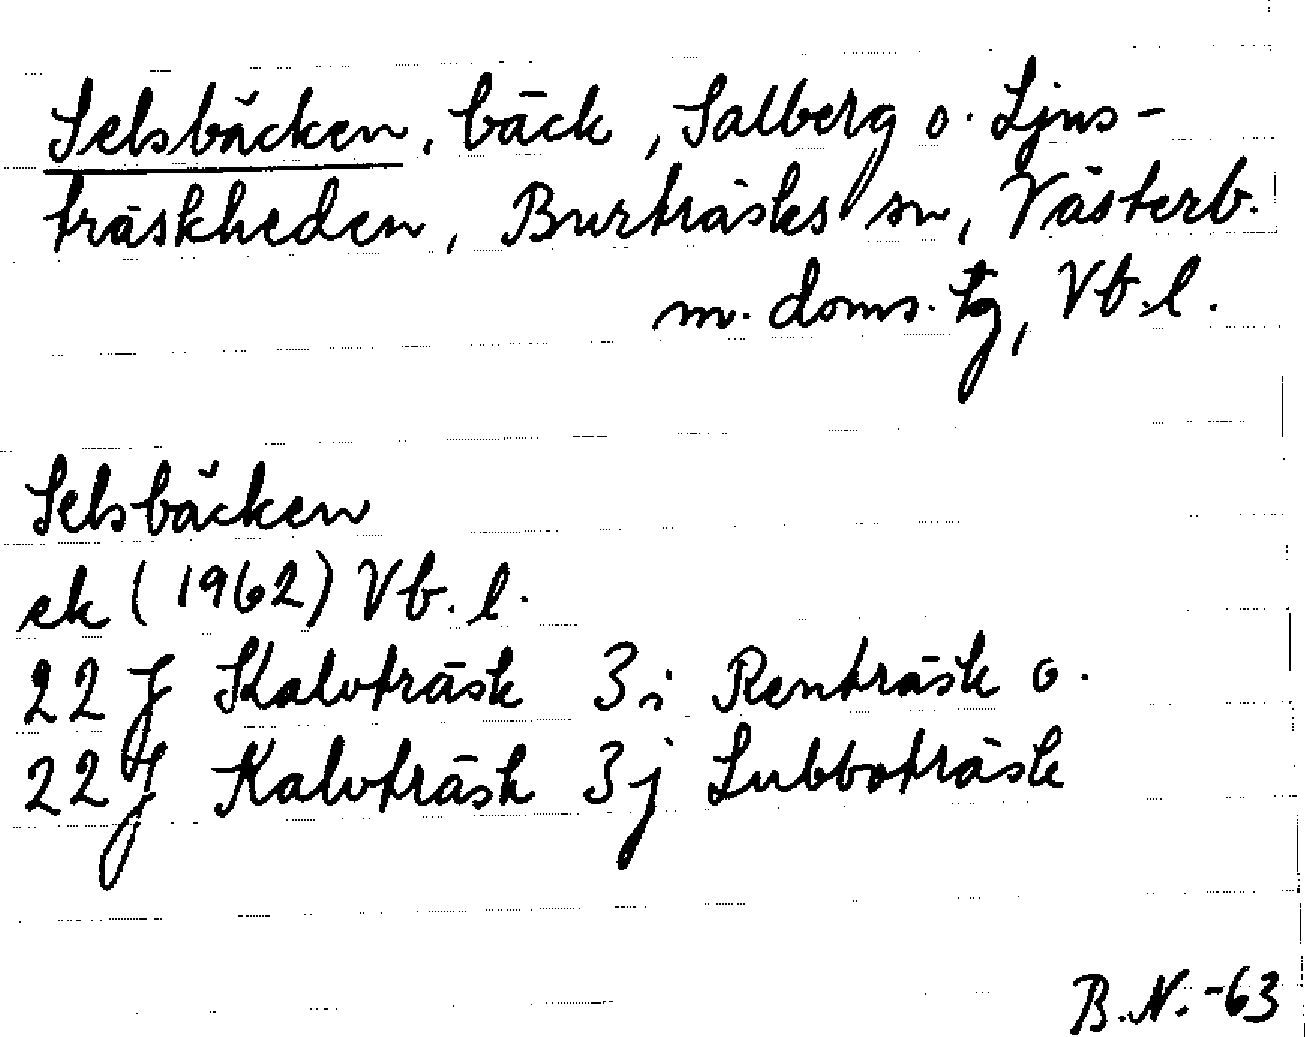 Selsbäcken, bäck, Salberg o. Ljus-
träskheden, Burträsks sn, Västerb.
m. doms. tg, Vb.l.
Selsbäcken
ek (1962) Vb. l.
22 J Kalvträsk 3i Renträsk o.
22 J Kalvträsk 3j Lubboträsk
B.N.-63